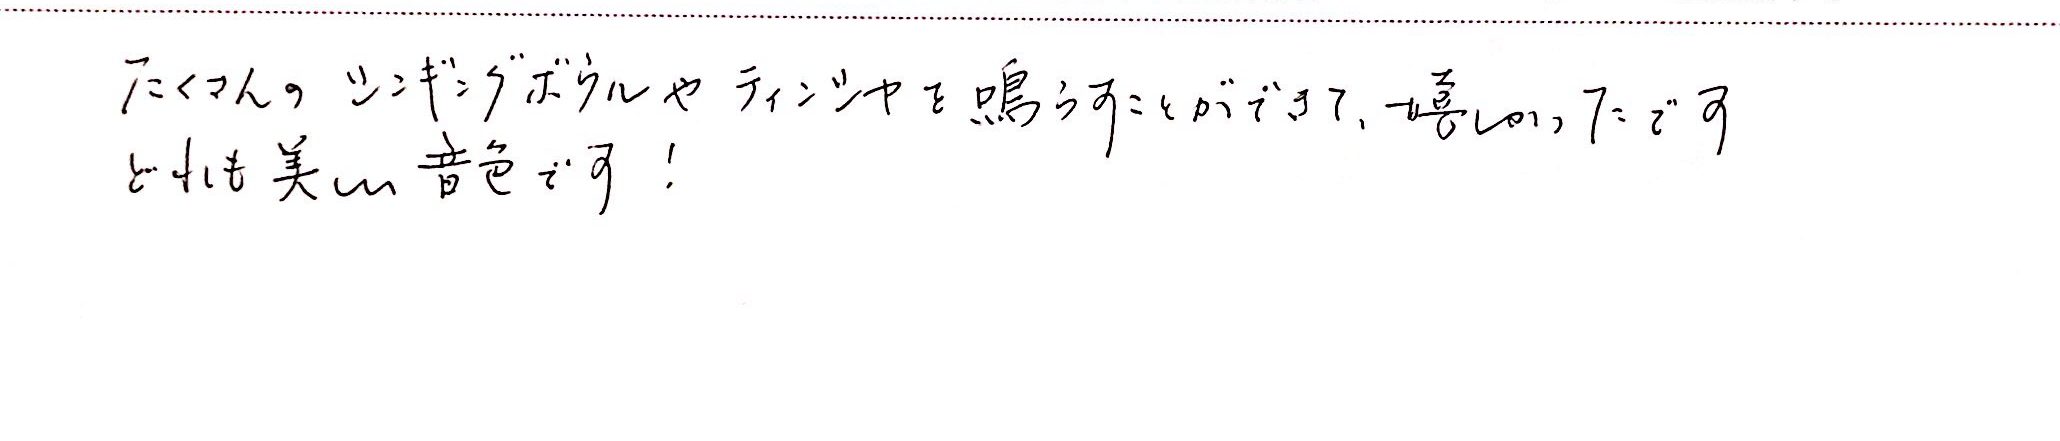 たくさんの シンギングボウルや ティンシャを鳴らすことができて、嬉しかったです
どれも美しい音色です！